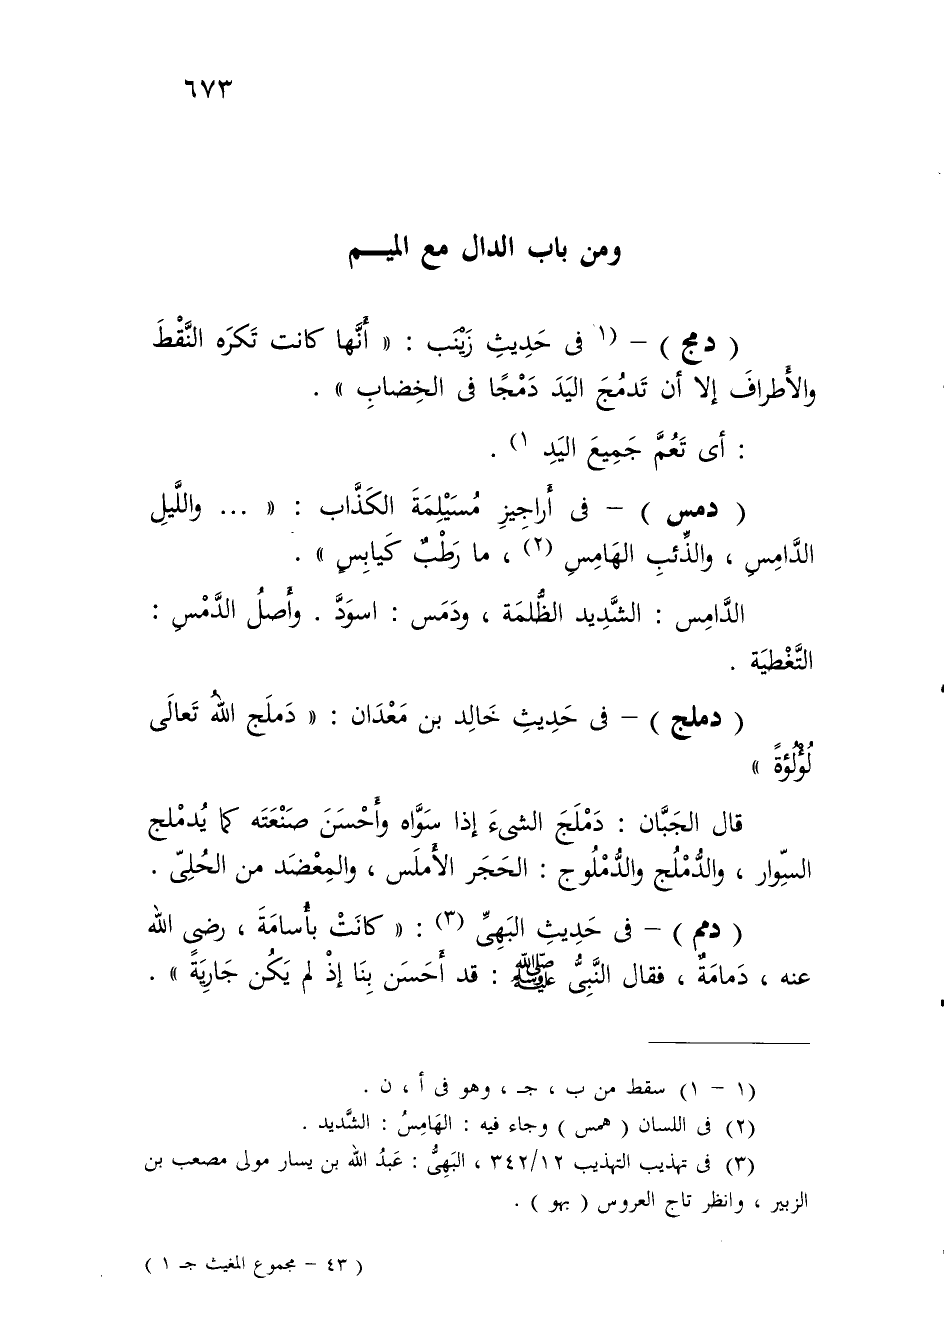 ٦٧٣
ومن باب الدال مع الميـــم
( دمج ) – (١ فى حَدِيثِ زَيْنَب : « أَنَّها كانت تَكرَه النَّقْطَ
والأَطرافَ إلا أن تَدمُجَ اليَدَ دَمْجًا فى الخِضابِ » .
: أى تَعُمَّ جَمِيعَ اليَدِ ١) .
( دمس ) – فى أَراجِيزِ مُسَيْلِمَةَ الكَذَّاب : « ... واللَّيلِ
الدَّامِسِ ، والذِّئبِ الهَامِسِ (٢) ، ما رَطْبٌ كَيابِسٍ » .
الدَّامِس : الشَّدِيد الظُّلمَة ، ودَمَس : اسوَدَّ . وأَصلُ الدَّمْسِ :
التَّغْطِيَة .
( دملج ) – فى حَدِيثِ خَالِد بن مَعْدَان : « دَملَج اللهُ تَعالَى
لُؤْلُؤةً »
قال الجَبَّان : دَمْلَجَ الشىءَ إذا سَوَّاه وأَحْسَنَ صَنْعَتَه كما يُدمْلج
السِّوار ، والدُّمْلُج والدُّمْلُوج : الحَجَر الأَملَس ، والمِعْضَد من الحُلِىّ .
( دمم ) – فى حَدِيثِ البَهِىِّ (٣) : « كانَتْ بأُسامَةَ ، رضى الله
عنه ، دَمامَةٌ ، فقال النَّبِىُّ ﷺ : قد أَحَسَن بِنَا إذْ لم يَكُن جَارِيَةً » .
(١ – ١) سقط من ب ، جـ ، وهو فى أ ، ن .
(٢) فى اللسان ( همس ) وجاء فيه : الهَامِسُ : الشَّديد .
(٣) فى تهذيب التهذيب ٣٤٢/١٢ ، البَهِىُّ : عَبدُ الله بن يسار مولى مصعب بن
الزبير ، وانظر تاج العروس ( بهو ) .
( ٤٣ – مجموع المغيث جـ ١ )